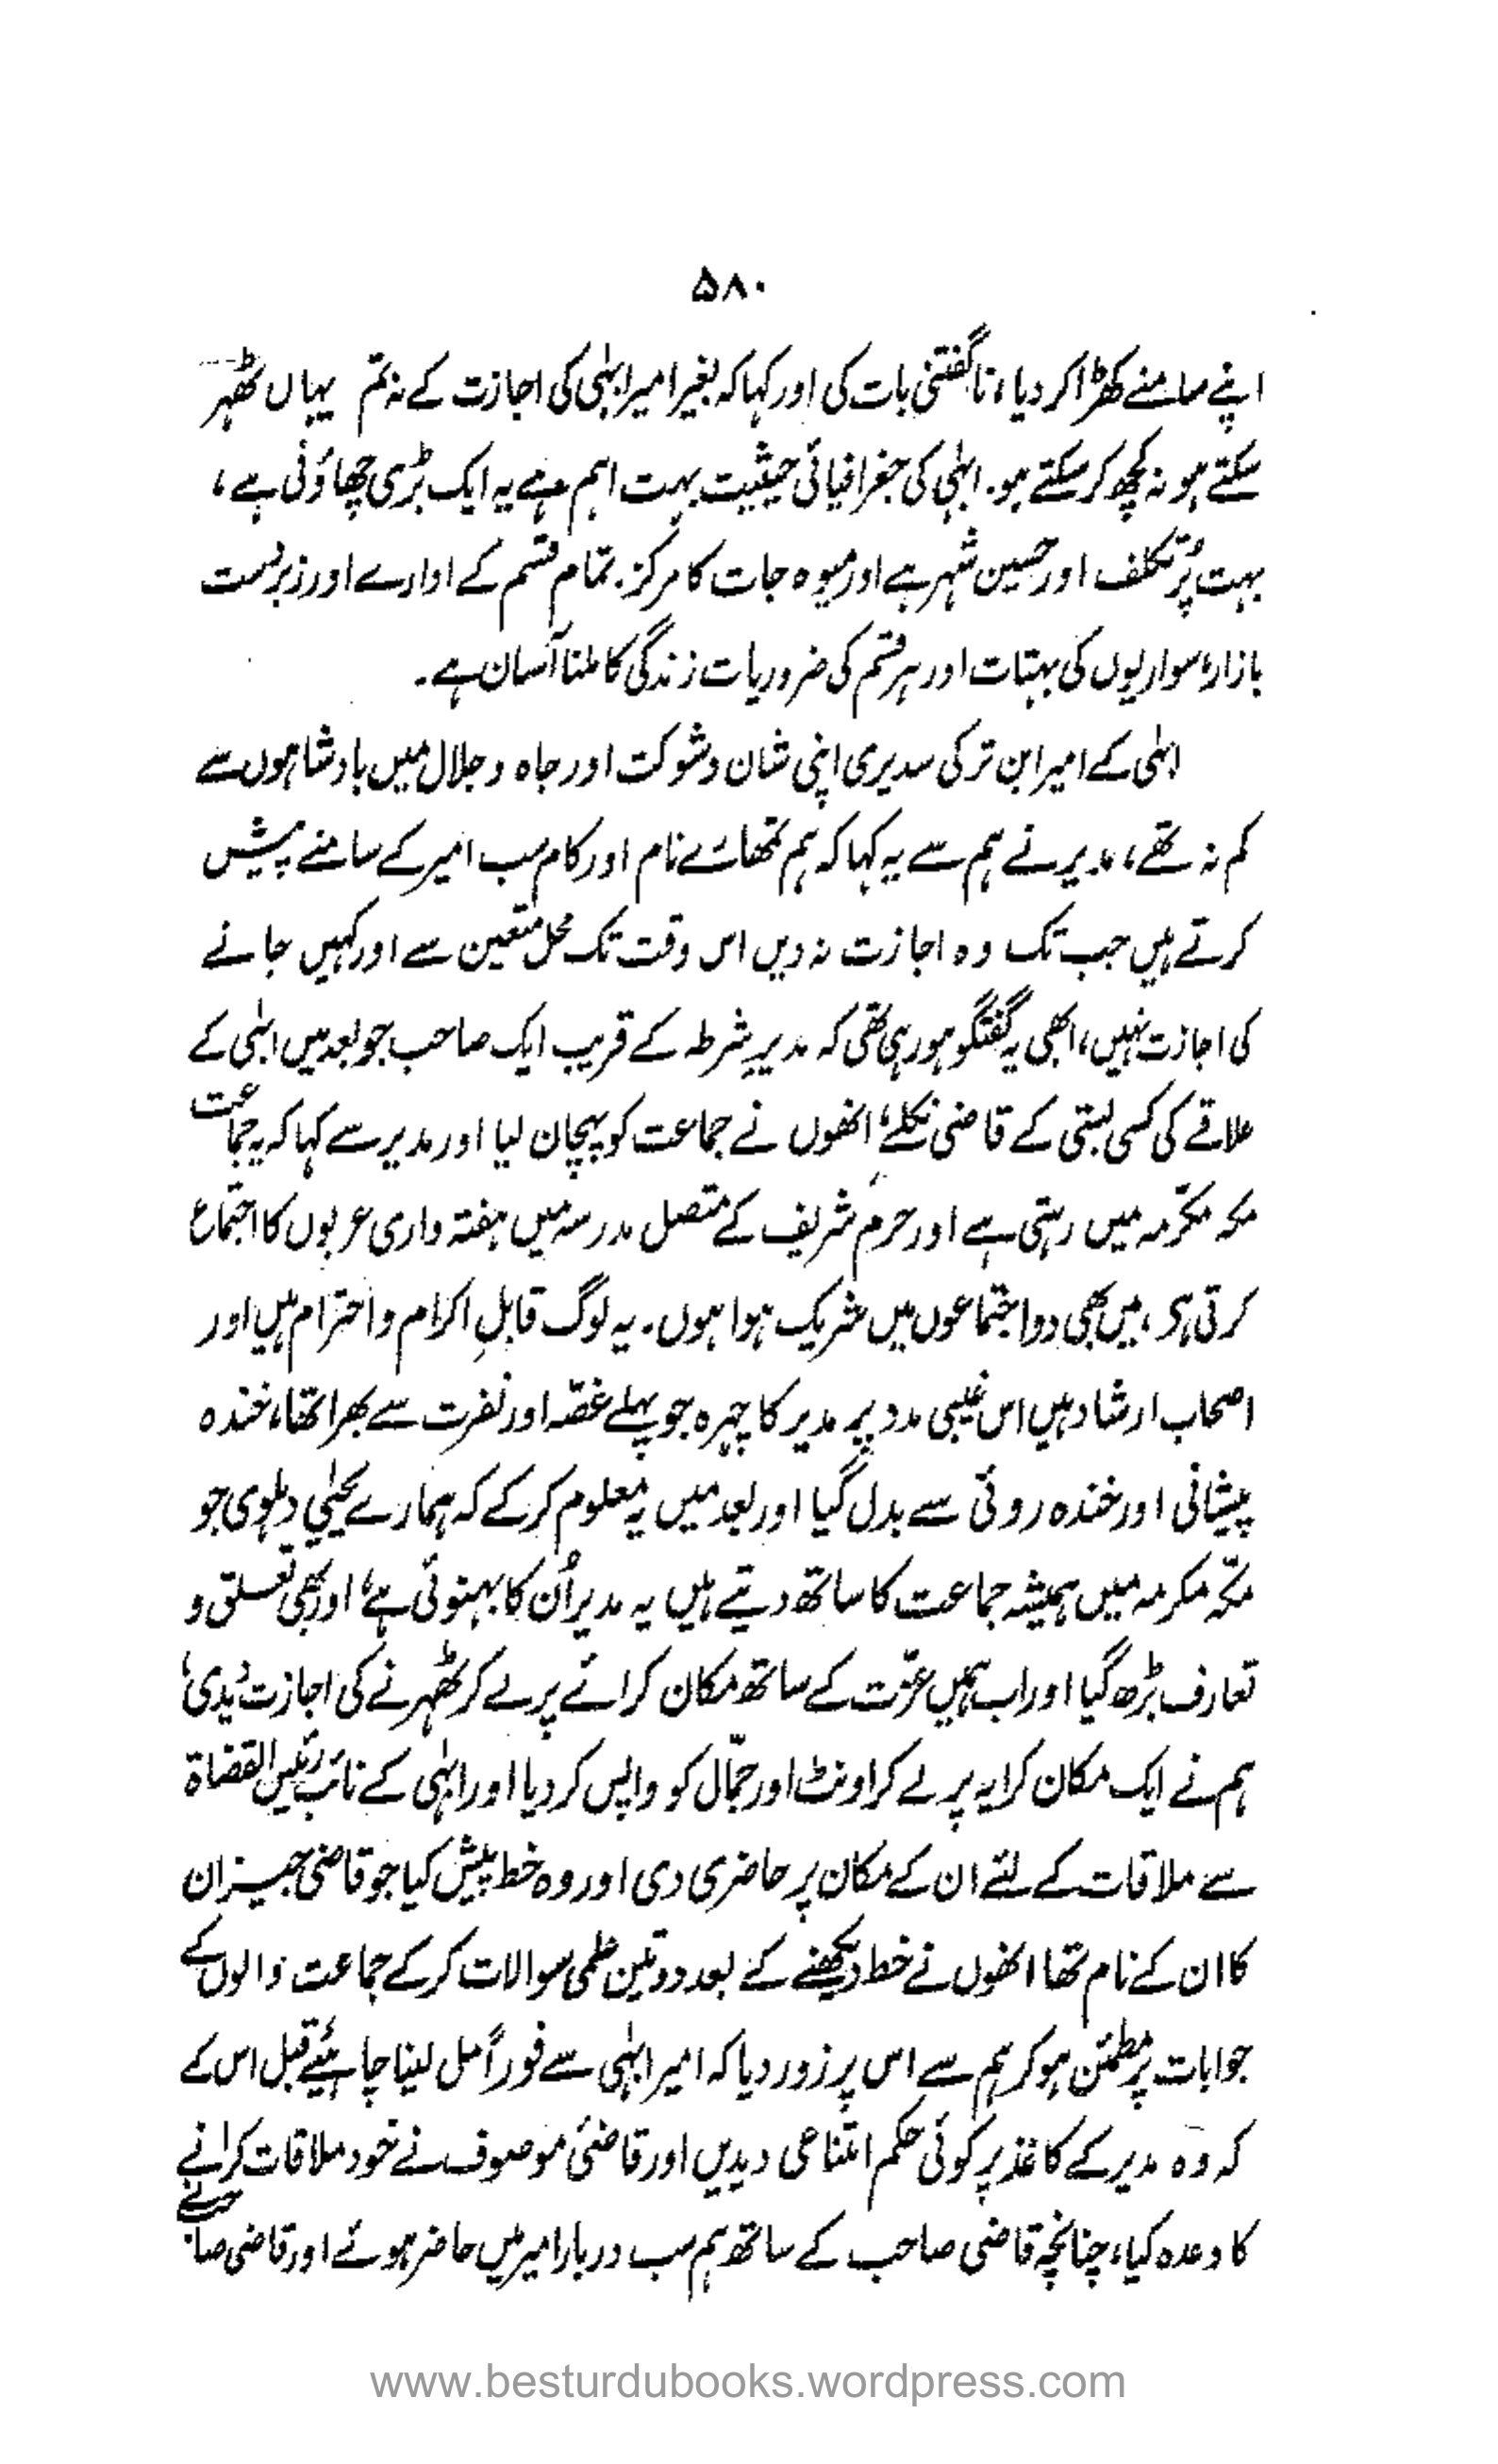 ۵۸۰
اپنے سامنے کھڑا کر دیا، ناگفتنی بات کی اور کہا کہ بغیر امیر ابہٰی کی اجازت کے نہ تم یہاں ٹھہر
سکتے ہو نہ کچھ کر سکتے ہو۔ ابہٰی کی جغرافیائی حیثیت بہت اہم ہے یہ ایک بڑی چھاؤنی ہے،
بہت پُر تکلف اور حسین شہر ہے اور میوہ جات کا مرکز۔ تمام قسم کے ادارے اور زبردست
بازار، سواریوں کی بہتات اور ہر قسم کی ضروریات زندگی کا ملنا آسان ہے۔
ابہٰی کے امیر ابن ترکی سدیری اپنی شان و شوکت اور جاہ و جلال میں بادشاہوں سے
کم نہ تھے، مدیر نے ہم سے یہ کہا کہ ہم تمھارے نام اور کام سب امیر کے سامنے پیش
کرتے ہیں جب تک وہ اجازت نہ دیں اس وقت تک محل متعین سے اور کہیں جانے
کی اجازت نہیں، ابھی یہ گفتگو ہو رہی تھی کہ مدیرِ شرطہ کے قریب ایک صاحب جو بعد میں ابہٰی کے
علاقے کی کسی بستی کے قاضی نکلے، انھوں نے جماعت کو پہچان لیا اور مدیر سے کہا کہ یہ جماعت
مکہ مکرّمہ میں رہتی ہے اور حرم شریف کے متصل مدرسہ میں ہفتہ واری عربوں کا اجتماع
کرتی ہے، میں بھی دو اجتماعوں میں شریک ہوا ہوں۔ یہ لوگ قابلِ اکرام و احترام ہیں اور
اصحاب ارشاد ہیں اس غیبی مدد پر مدیر کا چہرہ جو پہلے غصّہ اور نفرت سے بھرا تھا، خندہ
پیشانی اور خندہ روئی سے بدل گیا اور بعد میں یہ معلوم کر کے کہ ہمارے یحیٰی دہلوی جو
مکّہ مکرمہ میں ہمیشہ جماعت کا ساتھ دیتے ہیں یہ مدیر اُن کا بہنوئی ہے، اور بھی تعلق و
تعارف بڑھ گیا اور اب ہمیں عزّت کے ساتھ مکان کرائے پر لے کر ٹھہرنے کی اجازت دیدی،
ہم نے ایک مکان کرایہ پر لے کر اونٹ اور جمّال کو واپس کر دیا اور ابہٰی کے نائب رئیس القضاۃ
سے ملاقات کے لئے ان کے مکان پر حاضری دی اور وہ خط پیش کیا جو قاضی جیزان
کا ان کے نام تھا انھوں نے خط دیکھنے کے بعد دو تین علمی سوالات کر کے جماعت والوں کے
جوابات پر مطمئن ہو کر ہم سے اس پر زور دیا کہ امیر ابہٰی سے فوراً مل لینا چاہیئے قبل اس کے
کہ وہ مدیر کے کاغذ پر کوئی حکم امتناعی دیدیں اور قاضئ موصوف نے خود ملاقات کرانے
کا وعدہ کیا، چنانچہ قاضی صاحب کے ساتھ ہم سب دربار امیر میں حاضر ہوئے اور قاضی صاحب نے
www.besturdubooks.wordpress.com